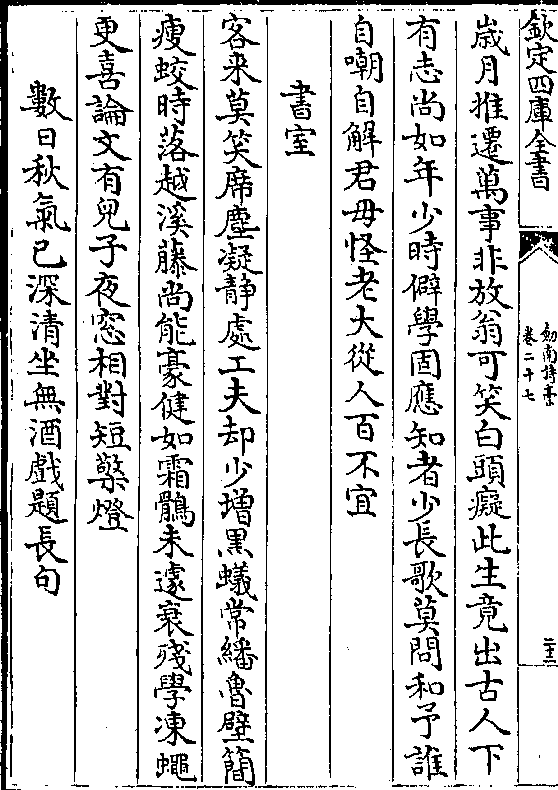 欽定四庫全書
劒南詩稾
卷二十七
二十三
歳月推遷萬事非放翁可笑白頭癡此生竟出古人下
有志尚如年少時僻學固應知者少長歌莫問和予誰
自嘲自解君毋怪老大從人百不宜
書室
客来莫笑席塵凝静處工夫却少增黒蟻常繙魯壁簡
瘦蛟時落越溪藤尚能豪健如霜鶻未遽衰殘學凍蠅
更喜論文有兒子夜窓相對短檠燈
數日秋氣已深清坐無酒戲題長句